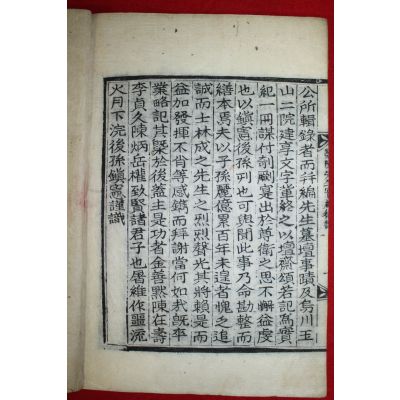 公所輯錄者而幷編先生墓壇事蹟及烏川玉
山二院建享文字輩終之以壇齋頌若記爲實
紀一冊謀付剞劂寔出於尊衛之思不懈益虔
也以鎭憲後孫列也可與聞此事乃命勘整而
繕本焉夫以子孫麗億累百年未遑者愧之追
誠而士林成之先生之烈烈聲光其將賴是而
益加發揮不肖等感鐫而拜謝當何如我旣卒
業略記其槩於後蓋主是功者金善默陳在壽
李貞久陳炳岳權致賢諸君子也屠維作噩流
火月下浣後孫鎭憲謹識